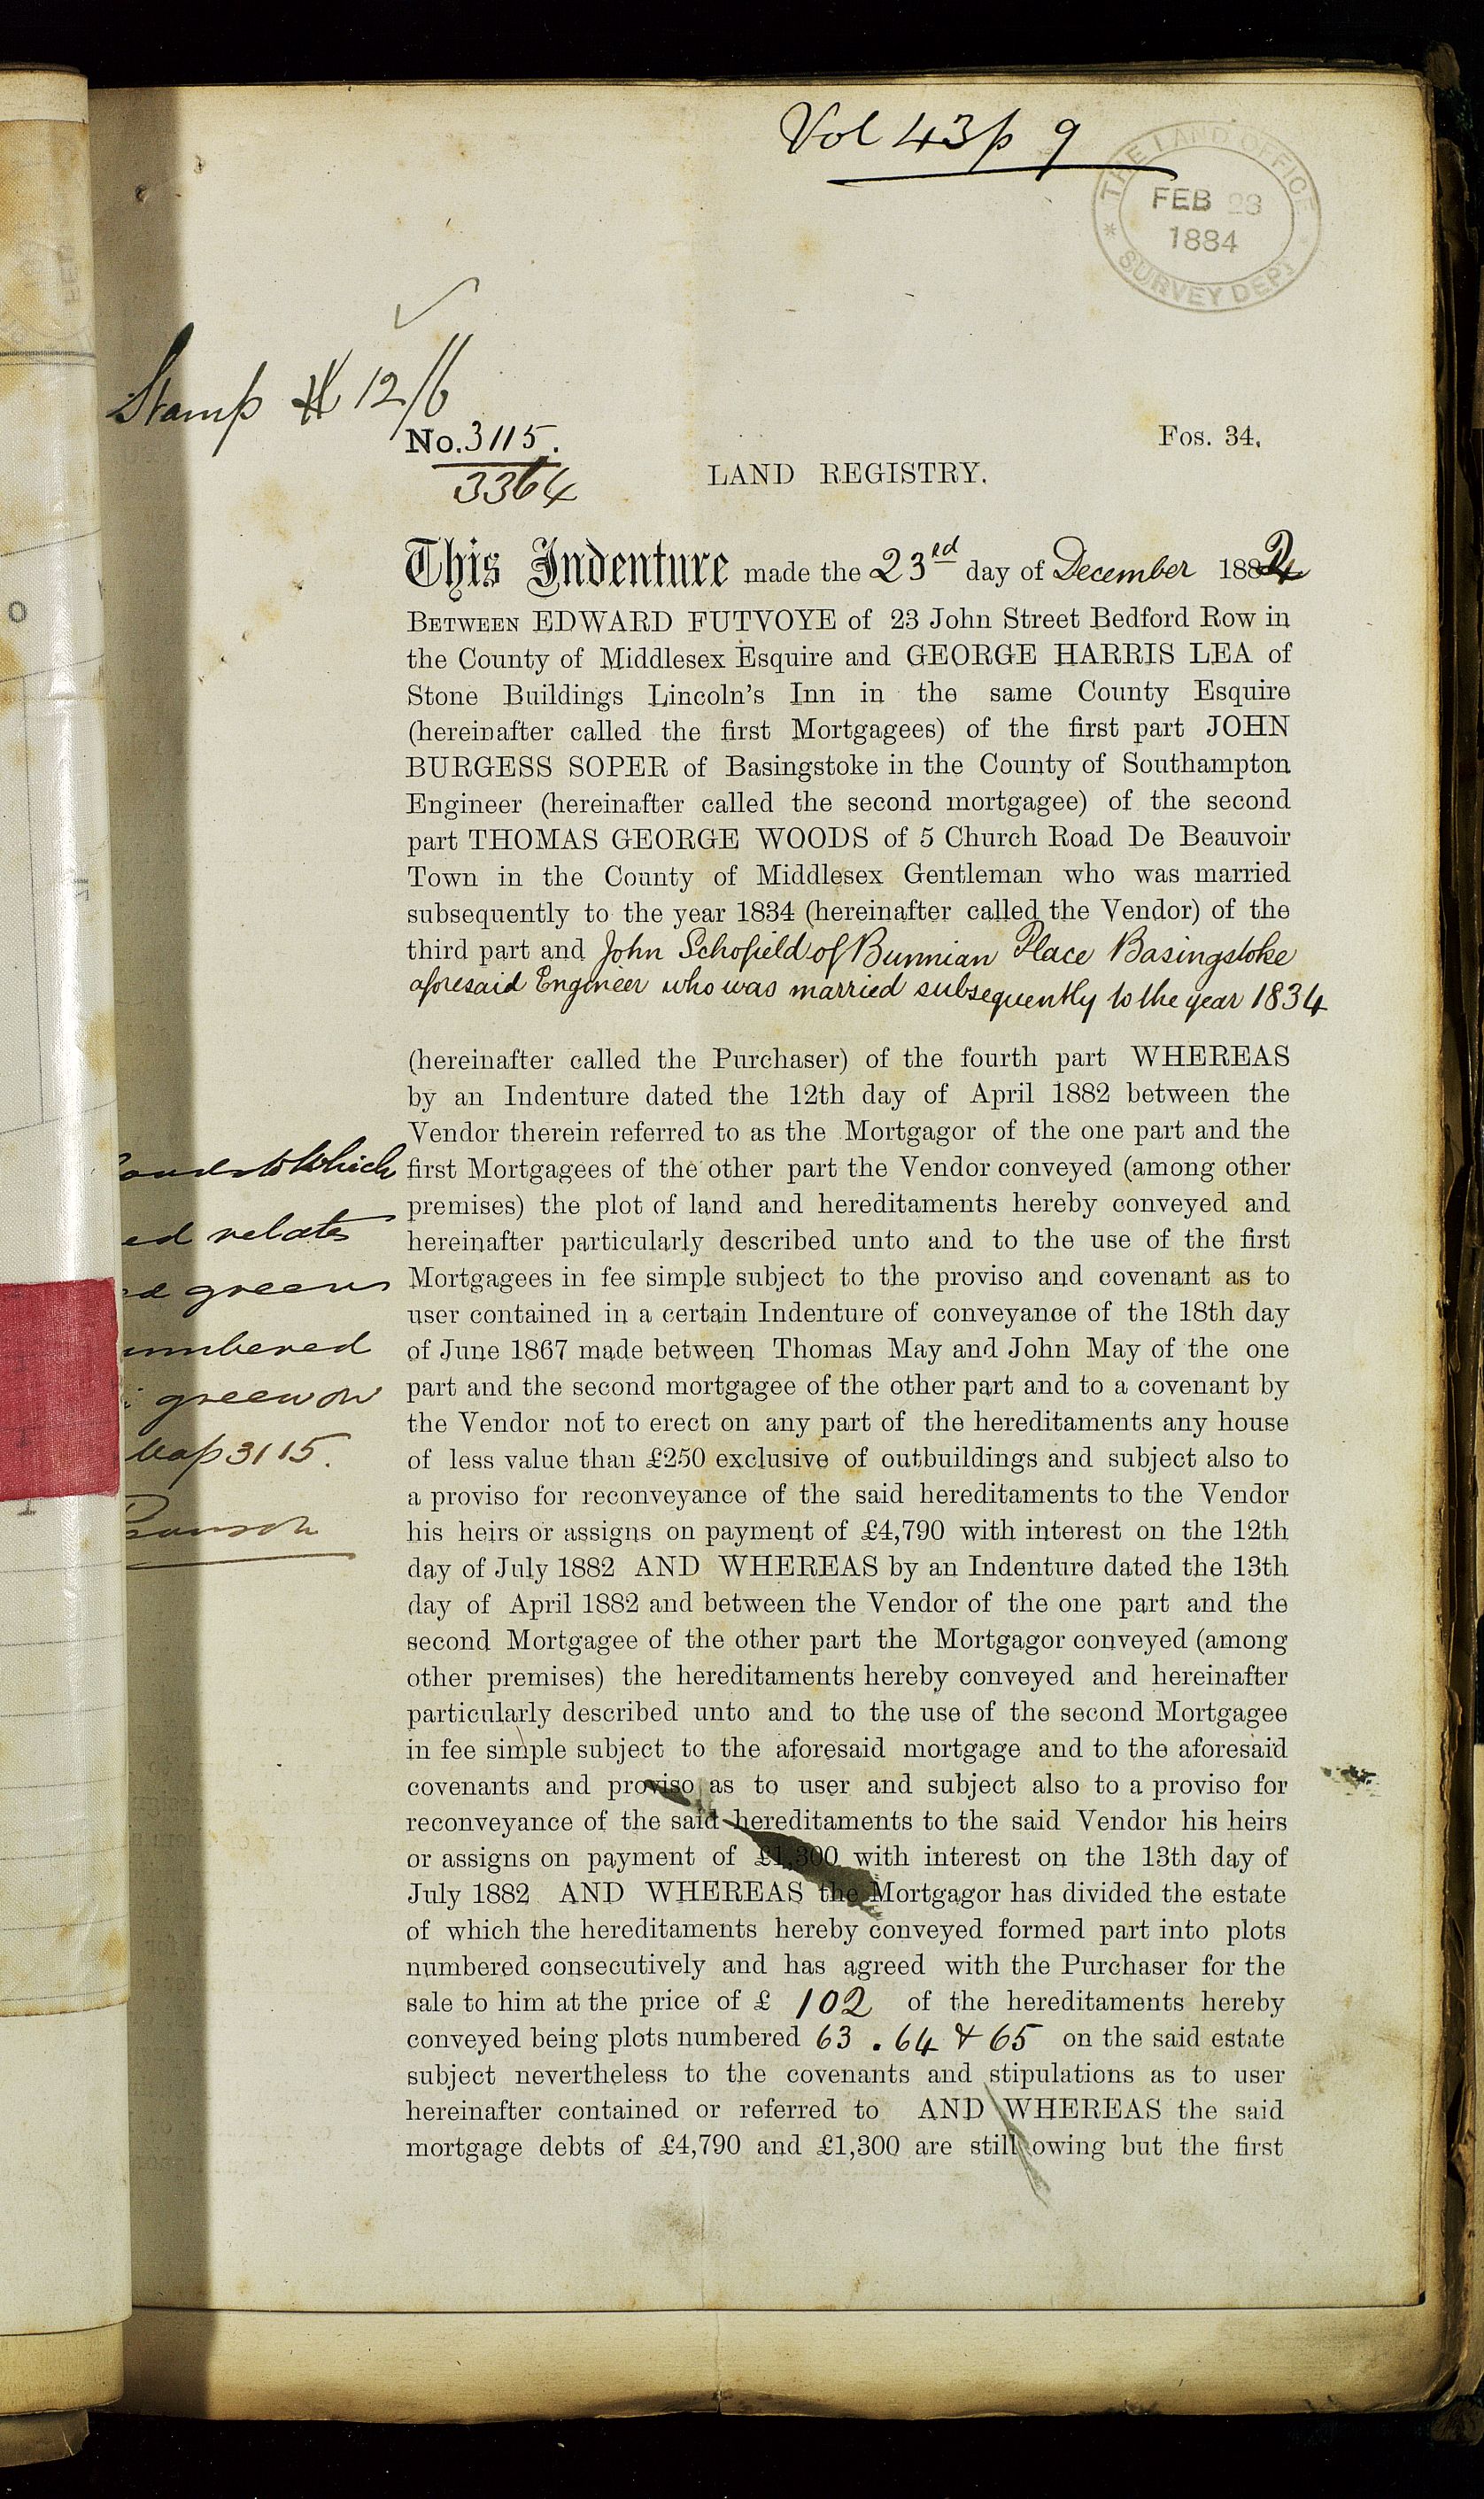 Vol 43 p 9
THE LAND OFFICE
FEB 23
1884
SURVEY DEPT
Stamp 12/6
No. 3115.
3364
Fos. 34.
LAND REGISTRY.
This Indenture made the 23rd day of December 1882
BETWEEN EDWARD FUTVOYE of 23 John Street Bedford Row in
the County of Middlesex Esquire and GEORGE HARRIS LEA of
Stone Buildings Lincoln's Inn in the same County Esquire
(hereinafter called the first Mortgagees) of the first part JOHN
BURGESS SOPER of Basingstoke in the County of Southampton
Engineer (hereinafter called the second mortgagee) of the second
part THOMAS GEORGE WOODS of 5 Church Road De Beauvoir
Town in the County of Middlesex Gentleman who was married
subsequently to the year 1834 (hereinafter called the Vendor) of the
third part and John Schofield of Bunnian Place Basingstoke
aforesaid Engineer who was married subsequently to the year 1834
(hereinafter called the Purchaser) of the fourth part WHEREAS
by an Indenture dated the 12th day of April 1882 between the
Vendor therein referred to as the Mortgagor of the one part and the
first Mortgagees of the other part the Vendor conveyed (among other
premises) the plot of land and hereditaments hereby conveyed and
hereinafter particularly described unto and to the use of the first
Mortgagees in fee simple subject to the proviso and covenant as to
user contained in a certain Indenture of conveyance of the 18th day
of June 1867 made between Thomas May and John May of the one
part and the second mortgagee of the other part and to a covenant by
the Vendor not to erect on any part of the hereditaments any house
of less value than £250 exclusive of outbuildings and subject also to
a proviso for reconveyance of the said hereditaments to the Vendor
his heirs or assigns on payment of £4,790 with interest on the 12th
day of July 1882 AND WHEREAS by an Indenture dated the 13th
day of April 1882 and between the Vendor of the one part and the
second Mortgagee of the other part the Mortgagor conveyed (among
other premises) the hereditaments hereby conveyed and hereinafter
particularly described unto and to the use of the second Mortgagee
in fee simple subject to the aforesaid mortgage and to the aforesaid
covenants and proviso as to user and subject also to a proviso for
reconveyance of the said hereditaments to the said Vendor his heirs
or assigns on payment of £1,300 with interest on the 13th day of
July 1882 AND WHEREAS the Mortgagor has divided the estate
of which the hereditaments hereby conveyed formed part into plots
numbered consecutively and has agreed with the Purchaser for the
sale to him at the price of £ 102 of the hereditaments hereby
conveyed being plots numbered 63 . 64 & 65 on the said estate
subject nevertheless to the covenants and stipulations as to user
hereinafter contained or referred to AND WHEREAS the said
mortgage debts of £4,790 and £1,300 are still owing but the first
to which
relates
green
umbered
green on
Map 3115.